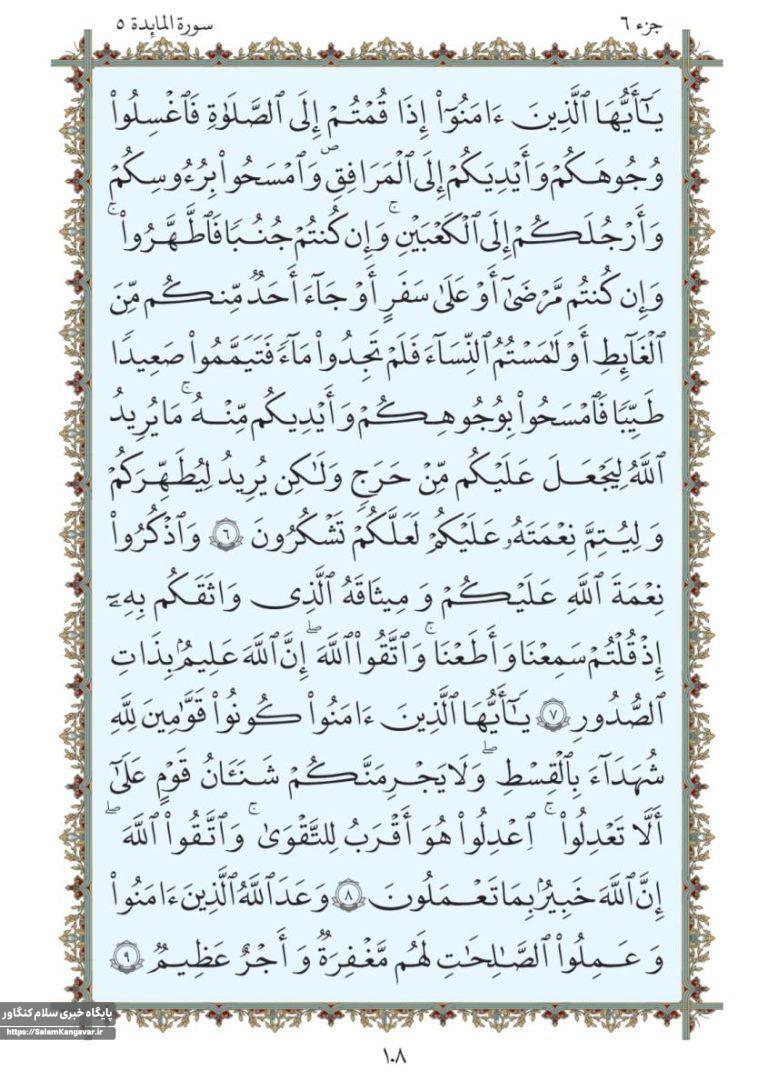 جزء ٦
سورة المائدة ٥
يَـٰٓأَيُّهَا ٱلَّذِينَ ءَامَنُوٓا۟ إِذَا قُمْتُمْ إِلَى ٱلصَّلَوٰةِ فَٱغْسِلُوا۟
وُجُوهَكُمْ وَأَيْدِيَكُمْ إِلَى ٱلْمَرَافِقِ ۖ وَٱمْسَحُوا۟ بِرُءُوسِكُمْ
وَأَرْجُلَكُمْ إِلَى ٱلْكَعْبَيْنِ ۚ وَإِن كُنتُمْ جُنُبًا فَٱطَّهَّرُوا۟ ۚ
وَإِن كُنتُم مَّرْضَىٰٓ أَوْ عَلَىٰ سَفَرٍ أَوْ جَآءَ أَحَدٌ مِّنكُم مِّنَ
ٱلْغَآئِطِ أَوْ لَـٰمَسْتُمُ ٱلنِّسَآءَ فَلَمْ تَجِدُوا۟ مَآءً فَتَيَمَّمُوا۟ صَعِيدًا
طَيِّبًا فَٱمْسَحُوا۟ بِوُجُوهِكُمْ وَأَيْدِيكُم مِّنْهُ ۚ مَا يُرِيدُ
ٱللَّهُ لِيَجْعَلَ عَلَيْكُم مِّنْ حَرَجٍ وَلَـٰكِن يُرِيدُ لِيُطَهِّرَكُمْ
وَلِيُتِمَّ نِعْمَتَهُۥ عَلَيْكُمْ لَعَلَّكُمْ تَشْكُرُونَ ٦ وَٱذْكُرُوا۟
نِعْمَةَ ٱللَّهِ عَلَيْكُمْ وَمِيثَاقَهُ ٱلَّذِى وَاثَقَكُم بِهِۦٓ
إِذْ قُلْتُمْ سَمِعْنَا وَأَطَعْنَا ۖ وَٱتَّقُوا۟ ٱللَّهَ ۚ إِنَّ ٱللَّهَ عَلِيمٌۢ بِذَاتِ
ٱلصُّدُورِ ٧ يَـٰٓأَيُّهَا ٱلَّذِينَ ءَامَنُوا۟ كُونُوا۟ قَوَّٰمِينَ لِلَّهِ
شُهَدَآءَ بِٱلْقِسْطِ ۖ وَلَا يَجْرِمَنَّكُمْ شَنَـَٔانُ قَوْمٍ عَلَىٰٓ
أَلَّا تَعْدِلُوا۟ ۚ ٱعْدِلُوا۟ هُوَ أَقْرَبُ لِلتَّقْوَىٰ ۚ وَٱتَّقُوا۟ ٱللَّهَ ۖ
إِنَّ ٱللَّهَ خَبِيرٌۢ بِمَا تَعْمَلُونَ ٨ وَعَدَ ٱللَّهُ ٱلَّذِينَ ءَامَنُوا۟
وَعَمِلُوا۟ ٱلصَّـٰلِحَـٰتِ لَهُم مَّغْفِرَةٌ وَأَجْرٌ عَظِيمٌ ٩
پایگاه خبری سلام کنگاور
https://SalamKangavar.ir
١٠٨